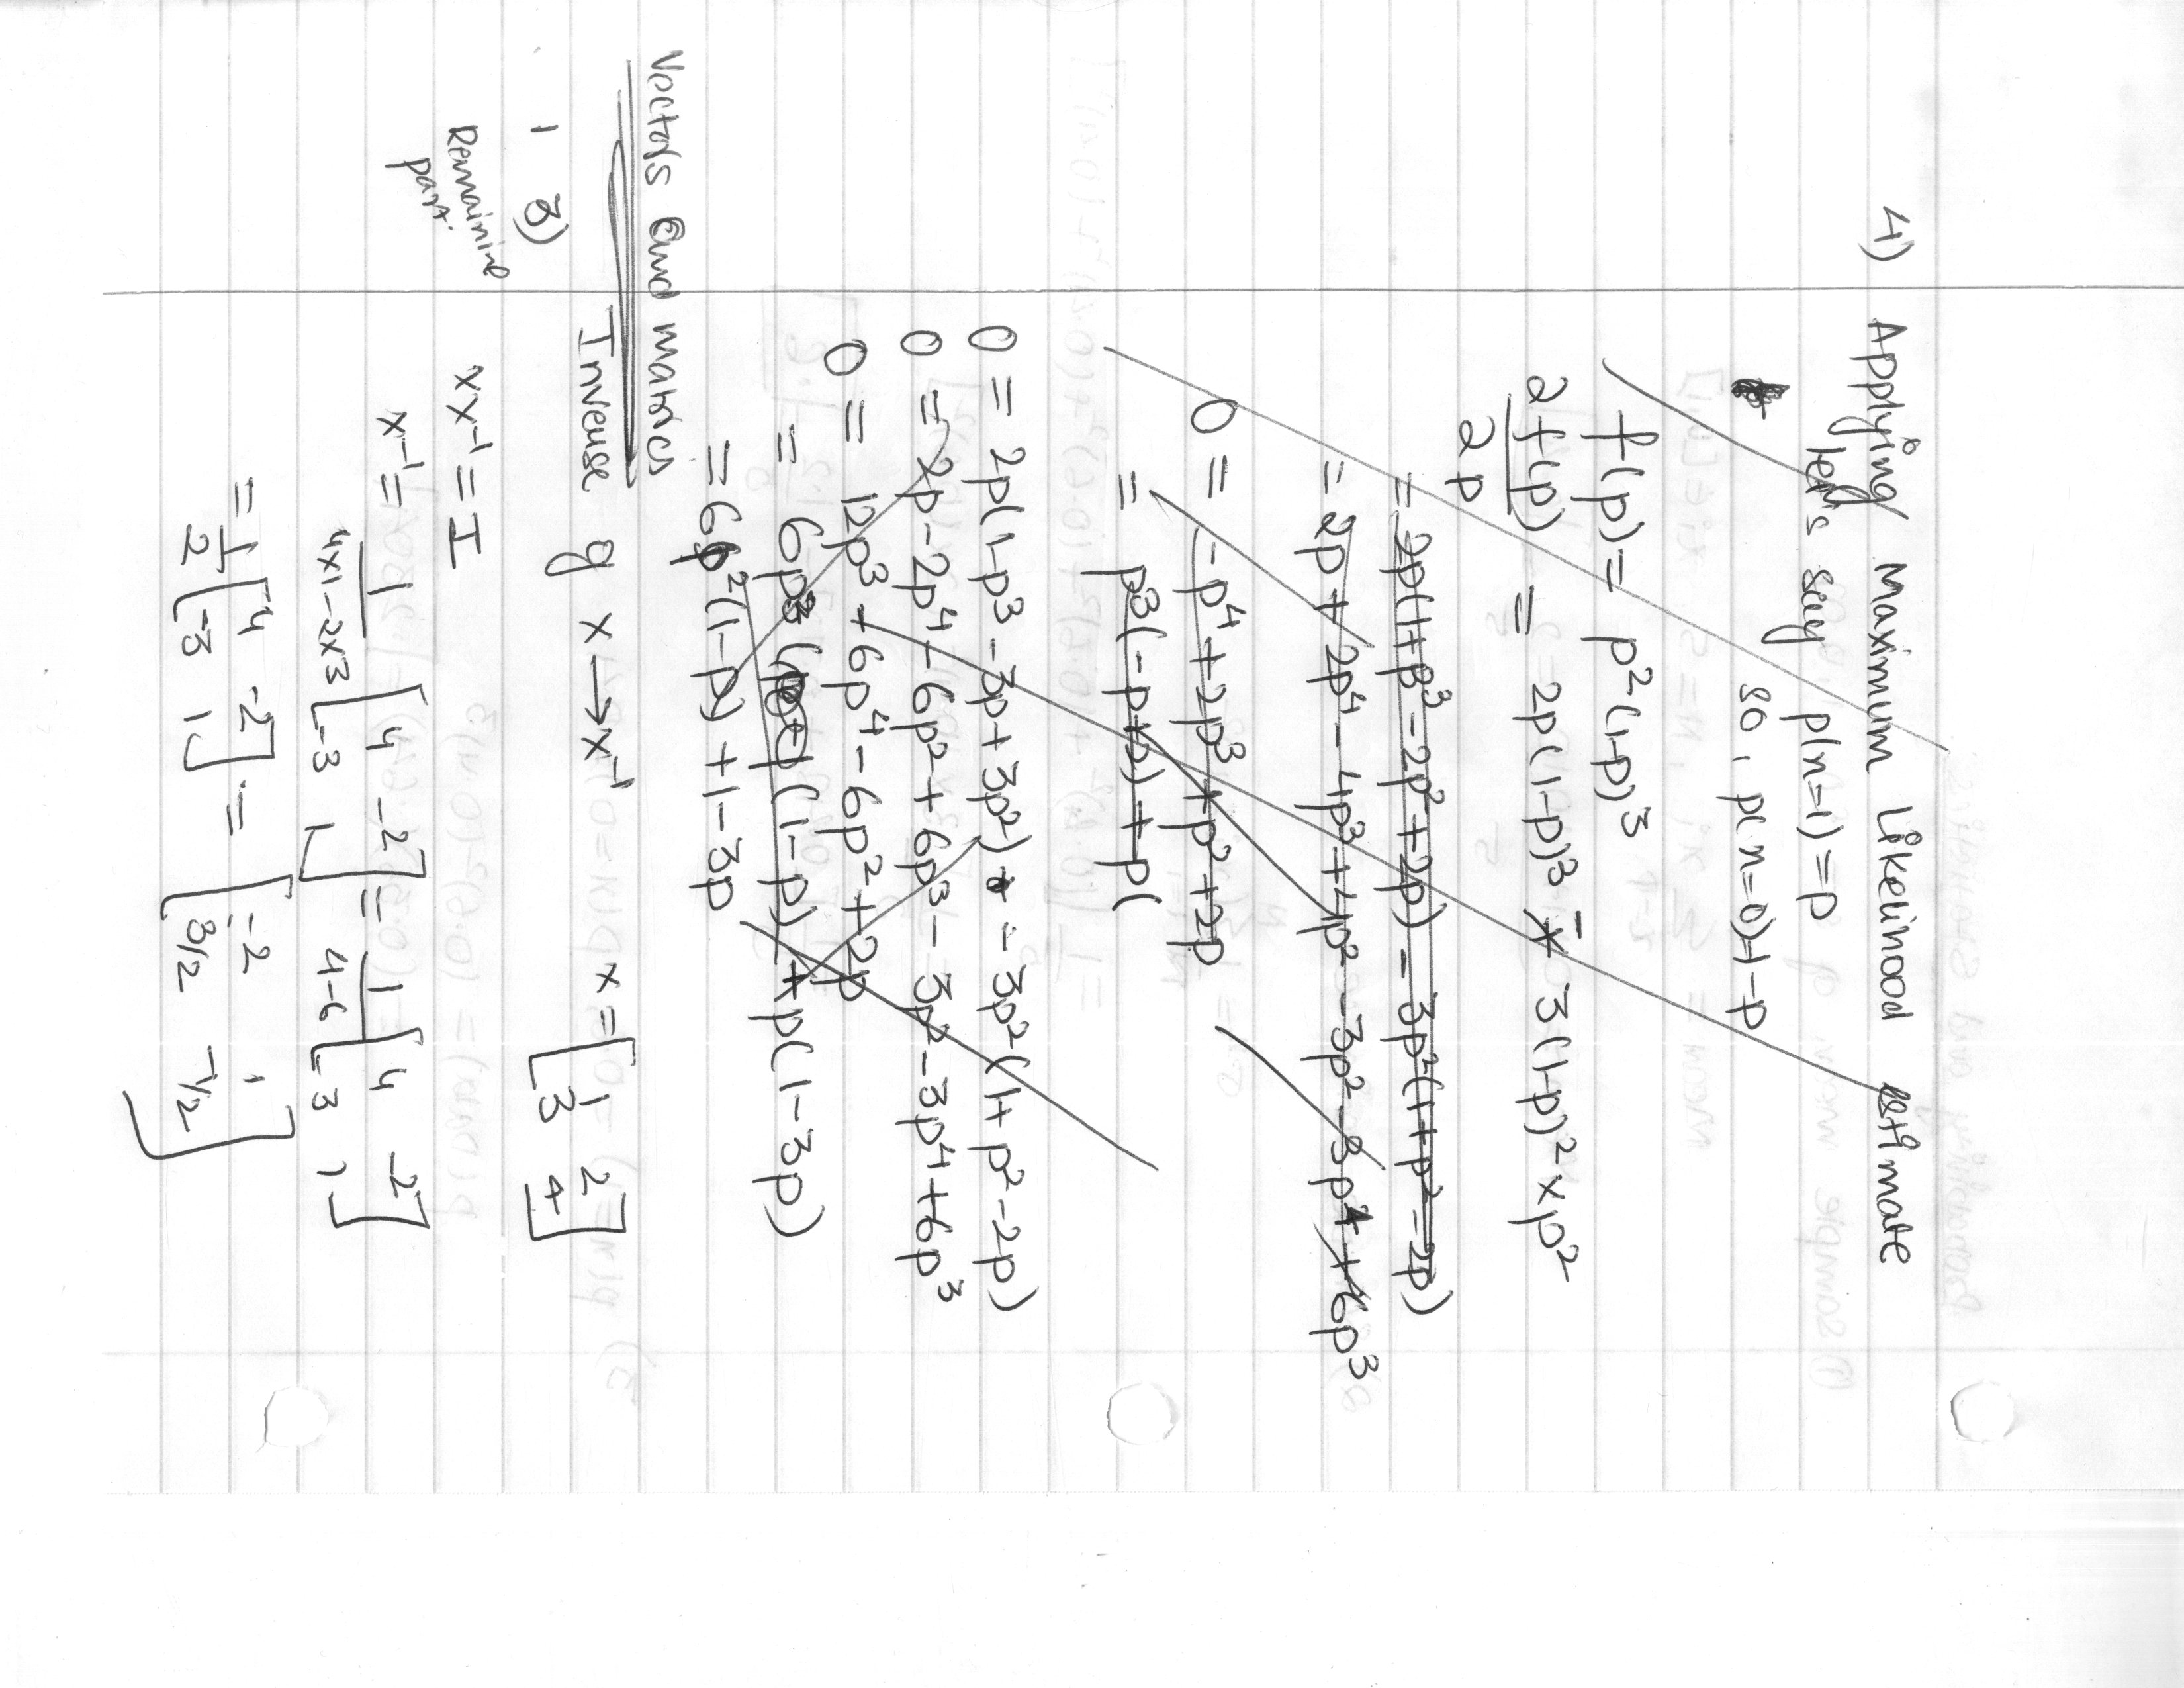 4) Applying Maximum Likelihood estimate
lets say p(n=1) = p
so, p(n=0)=1-p
f(p) = p²(1-p)³
∂f(p)/∂p = 2p(1-p)³ - 3(1-p)² x p²
= 2p(1+p³-2p²+2p) - 3p²(1+p²-2p)
= 2p + 2p⁴ - 4p³ + 4p² - 3p² - 3p⁴ + 6p³
0 = -p⁴ + 2p³ + p² + 2p
= p³(-p+2) + p(
0 = 2p(1-p³-3p+3p²) - 3p²(1+p²-2p)
0 = 2p - 2p⁴ - 6p² + 6p³ - 3p² - 3p⁴ + 6p³
0 = 12p³ + 6p⁴ - 6p² + 2p
= 6p³ (1-p) + p(1-3p)
= 6p²(1-p) + 1-3p
Vectors and matrics
1 3) Inverse of x → x⁻¹ x = [1 2; 3 4]
Remaining part. xx⁻¹ = I
x⁻¹ = 1/(4x1-2x3) [4 -2; -3 1] = 1/(4-6) [4 -2; -3 1]
= 1/2 [-4 -2; -3 1] = [-2 1; 3/2 -1/2]